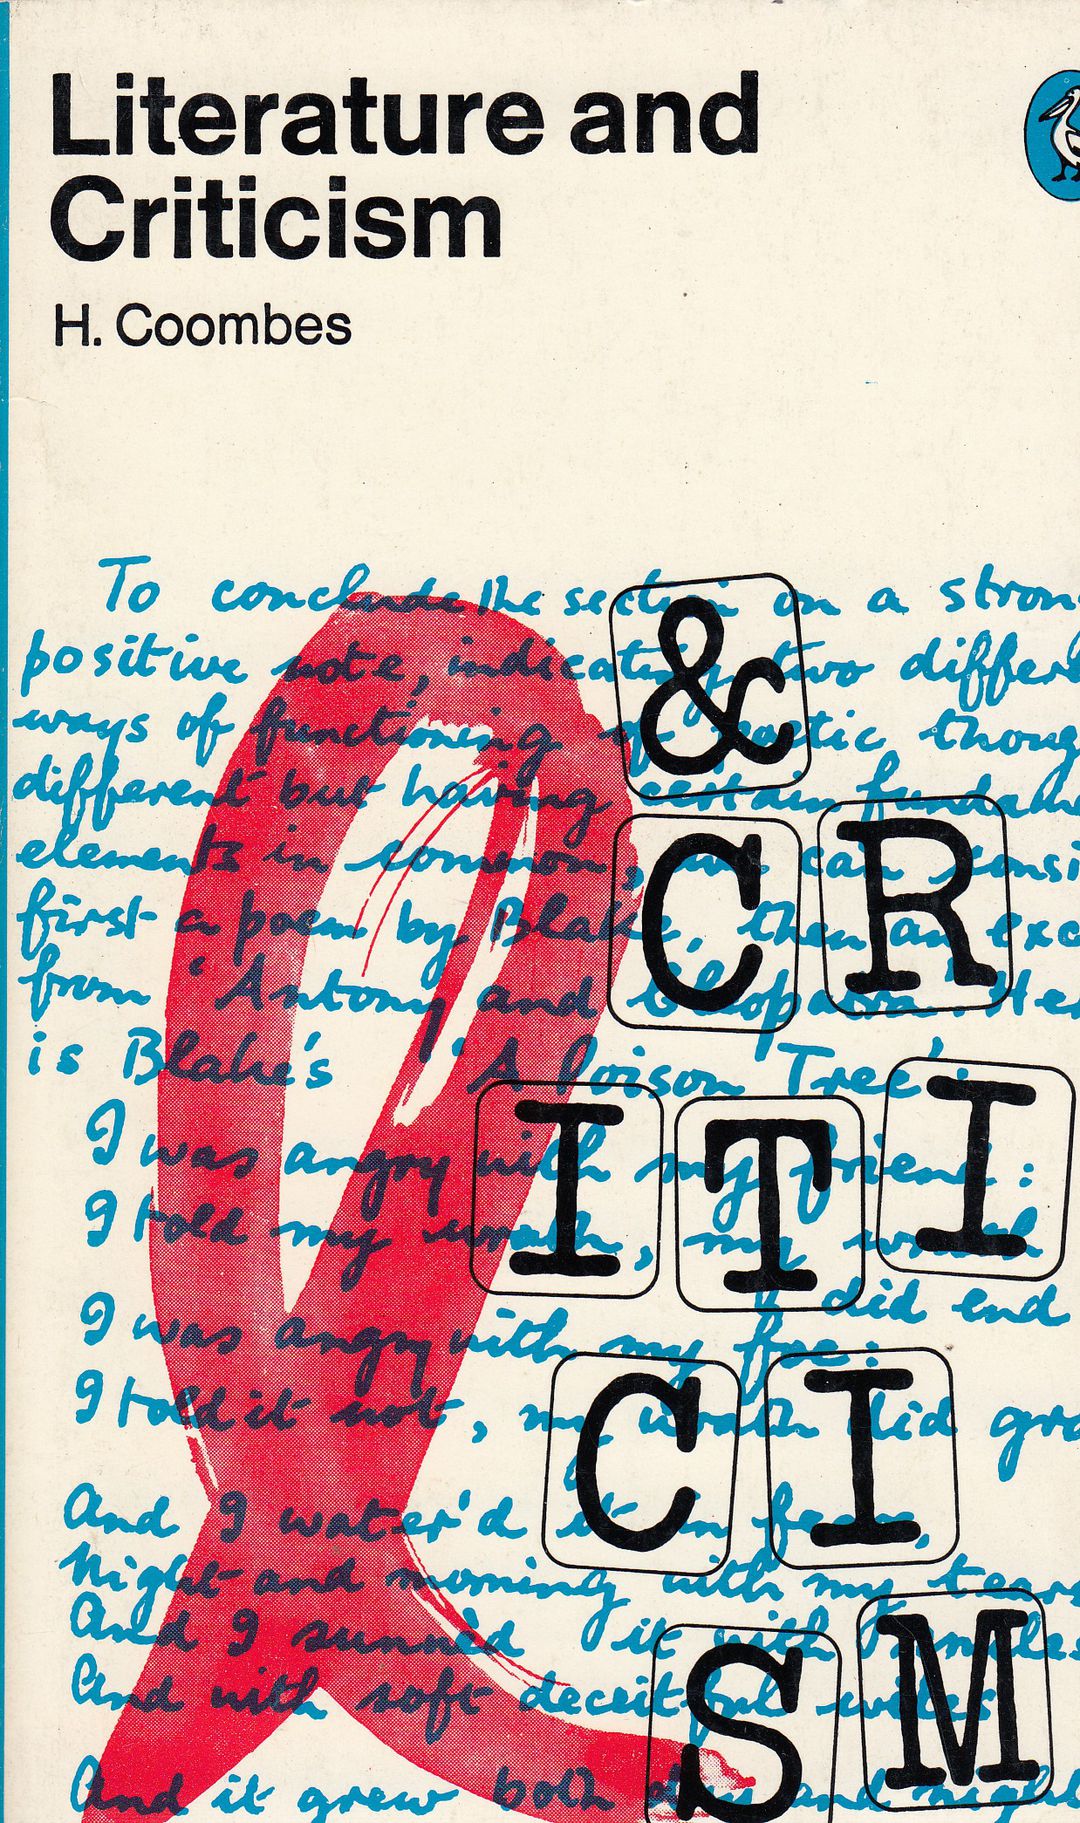 Literature and
Criticism
H. Coombes
To conclude the section on a stron
positive note, indicating two differe
ways of functioning of poetic thoug
different but having certain fundame
elements in common, we can consi
first a poem by Blake, then an exc
from 'Antony and Cleopatra'. Her
is Blake's 'A Poison Tree':
I was angry with my friend:
I told my wrath, my wrath
did end
I was angry with my foe:
I told it not, my wrath did gro
And I water'd it in fears,
Night and morning with my tears
And I sunnèd it with smiles
And with soft deceitful wiles
And it grew both day and night
&
CR
ITI
CI
SM